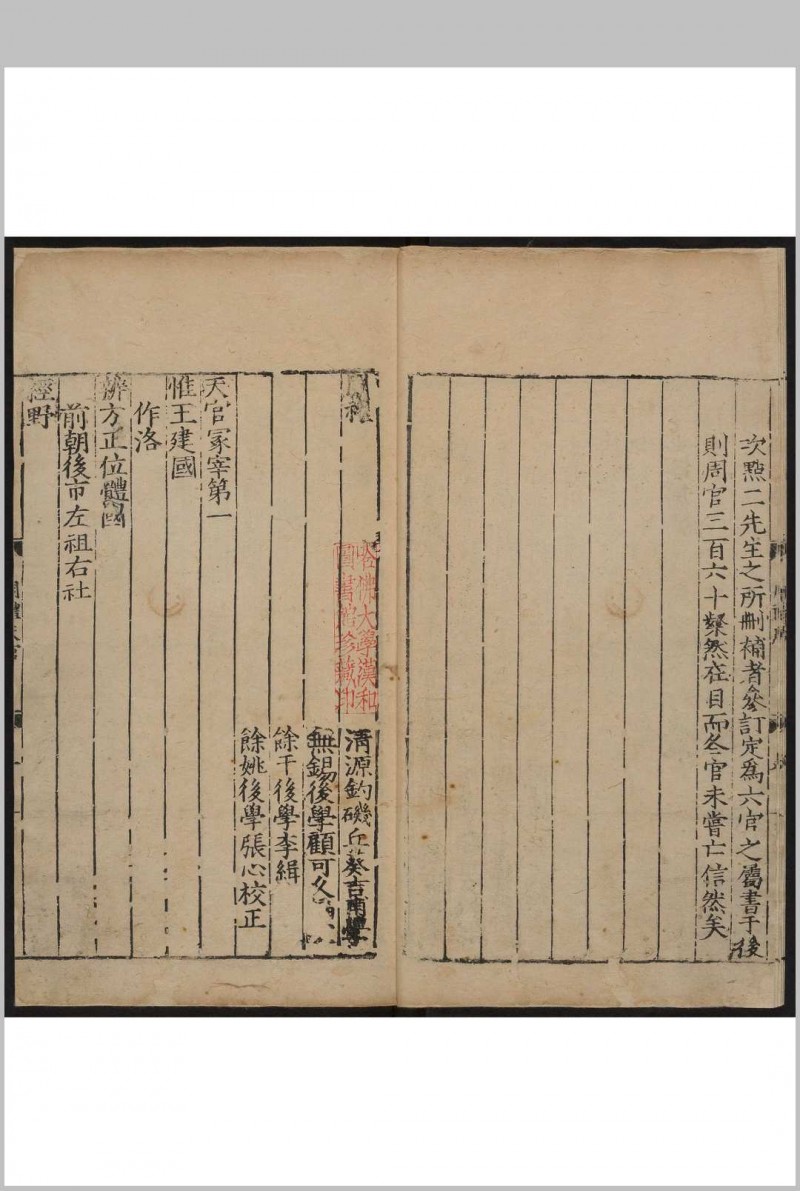 次點二先生之所刪補者叅訂定為六官之屬書于後
則周官三百六十粲然在目而冬官未嘗亡信然矣
周禮
清源釣磯丘葵吉甫學
無錫後學顧可久
餘干後學李緝
餘姚後學張心校正
天官冢宰第一
惟王建國
作洛
辨方正位體國
前朝後市左祖右社
經野
哈佛大學漢和
圖書館珍藏印